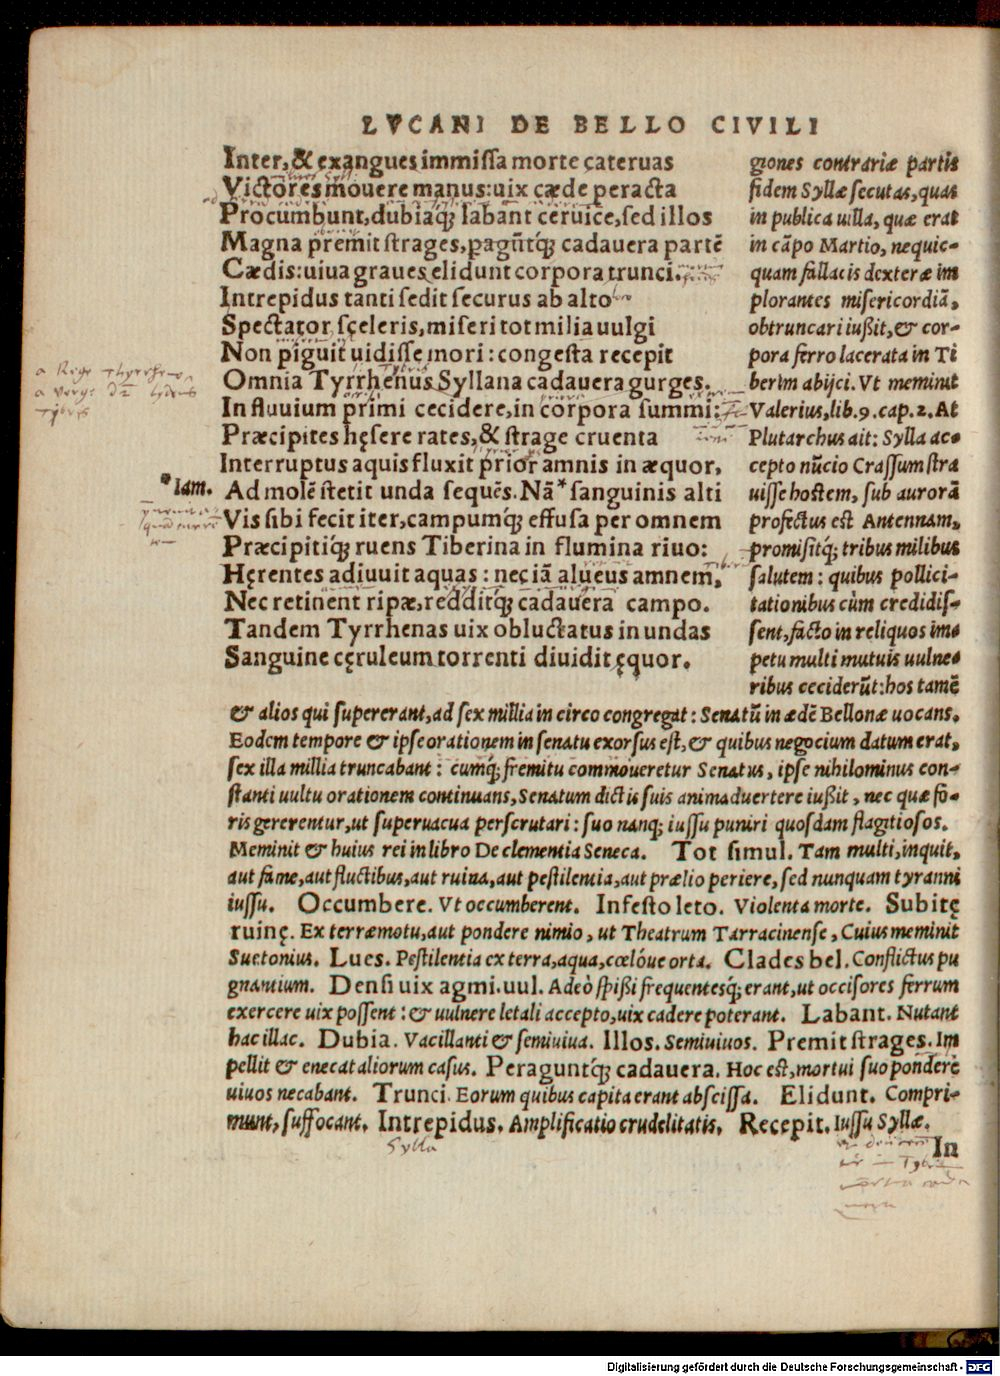 LVCANI DE BELLO CIVILI
Inter, & exangues immissa morte cateruas
Victores mouere manus: uix cæde peracta
Procumbunt, dubiaq́; labant ceruice, sed illos
Magna premit strages, pagũtq́; cadauera partẽ
Cædis: uiua graues elidunt corpora trunci.
Intrepidus tanti sedit securus ab alto
Spectator sceleris, miseri tot milia uulgi
Non piguit uidisse mori: congesta recepit
Omnia Tyrrhenus Syllana cadauera gurges.
In fluuium primi cecidere, in corpora summi:
Præcipites hęsere rates, & strage cruenta
Interruptus aquis fluxit prior amnis in æquor,
*Iam.
Ad molẽ stetit unda sequẽs. Nã* sanguinis alti
Vis sibi fecit iter, campumq́; effusa per omnem
Præcipitiq́; ruens Tiberina in flumina riuo:
Hęrentes adiuuit aquas: nec iã alueus amnem,
Nec retinent ripæ, redditq́; cadauera campo.
Tandem Tyrrhenas uix obluctatus in undas
Sanguine cęruleum torrenti diuidit ęquor.
giones contrariæ partis
fidem Syllæ secutas, quas
in publica uilla, quæ erat
in cãpo Martio, nequic-
quam fallacis dexteræ im
plorantes misericordiã,
obtruncari iußit, & cor-
pora ferro lacerata in Ti
berim abijci. Vt meminit
Valerius, lib. 9. cap. 2. At
Plutarchus ait: Sylla ac-
cepto nũcio Crassum stra
uisse hostem, sub aurorã
profectus est Antennam,
promisitq́; tribus milibus
salutem: quibus pollici-
tationibus cùm credidis-
sent, facto in reliquos im-
petu multi mutuis uulne-
ribus ceciderũt: hos tamẽ
& alios qui supererant, ad sex millia in circo congregat: Senatũ in ædẽ Bellonæ uocans.
Eodem tempore & ipse orationem in senatu exorsus est, & quibus negocium datum erat,
sex illa millia truncabant: cumq́; fremitu commoueretur Senatus, ipse nihilominus con-
stanti uultu orationem continuans, Senatum dictis suis animaduertere iußit, nec quæ fo-
ris gererentur, ut superuacua perscrutari: suo nanq; iussu puniri quosdam flagitiosos.
Meminit & huius rei in libro De clementia Seneca. Tot simul. Tam multi, inquit,
aut fame, aut fluctibus, aut ruina, aut pestilentia, aut prælio periere, sed nunquam tyranni
iussu. Occumbere. Vt occumberent. Infesto leto. Violenta morte. Subitę
ruinę. Ex terræmotu, aut pondere nimio, ut Theatrum Tarracinense, Cuius meminit
Suetonius. Lues. Pestilentia ex terra, aqua, cœlo'ue orta. Clades bel. Conflictus pu
gnantium. Densi uix agmi. uul. Adeò spißi frequentesq́; erant, ut occisores ferrum
exercere uix possent: & uulnere letali accepto, uix cadere poterant. Labant. Nutant
hac illac. Dubia. Vacillanti & semiuiua. Illos. Semiuiuos. Premit strages. Im
pellit & enecat aliorum casus. Peraguntq́; cadauera. Hoc est, mortui suo pondere
uiuos necabant. Trunci. Eorum quibus capita erant abscissa. Elidunt. Compri-
munt, suffocant. Intrepidus. Amplificatio crudelitatis. Recepit. Iussu Syllæ.
Sylla
In
Digitalisierung gefördert durch die Deutsche Forschungsgemeinschaft - DFG